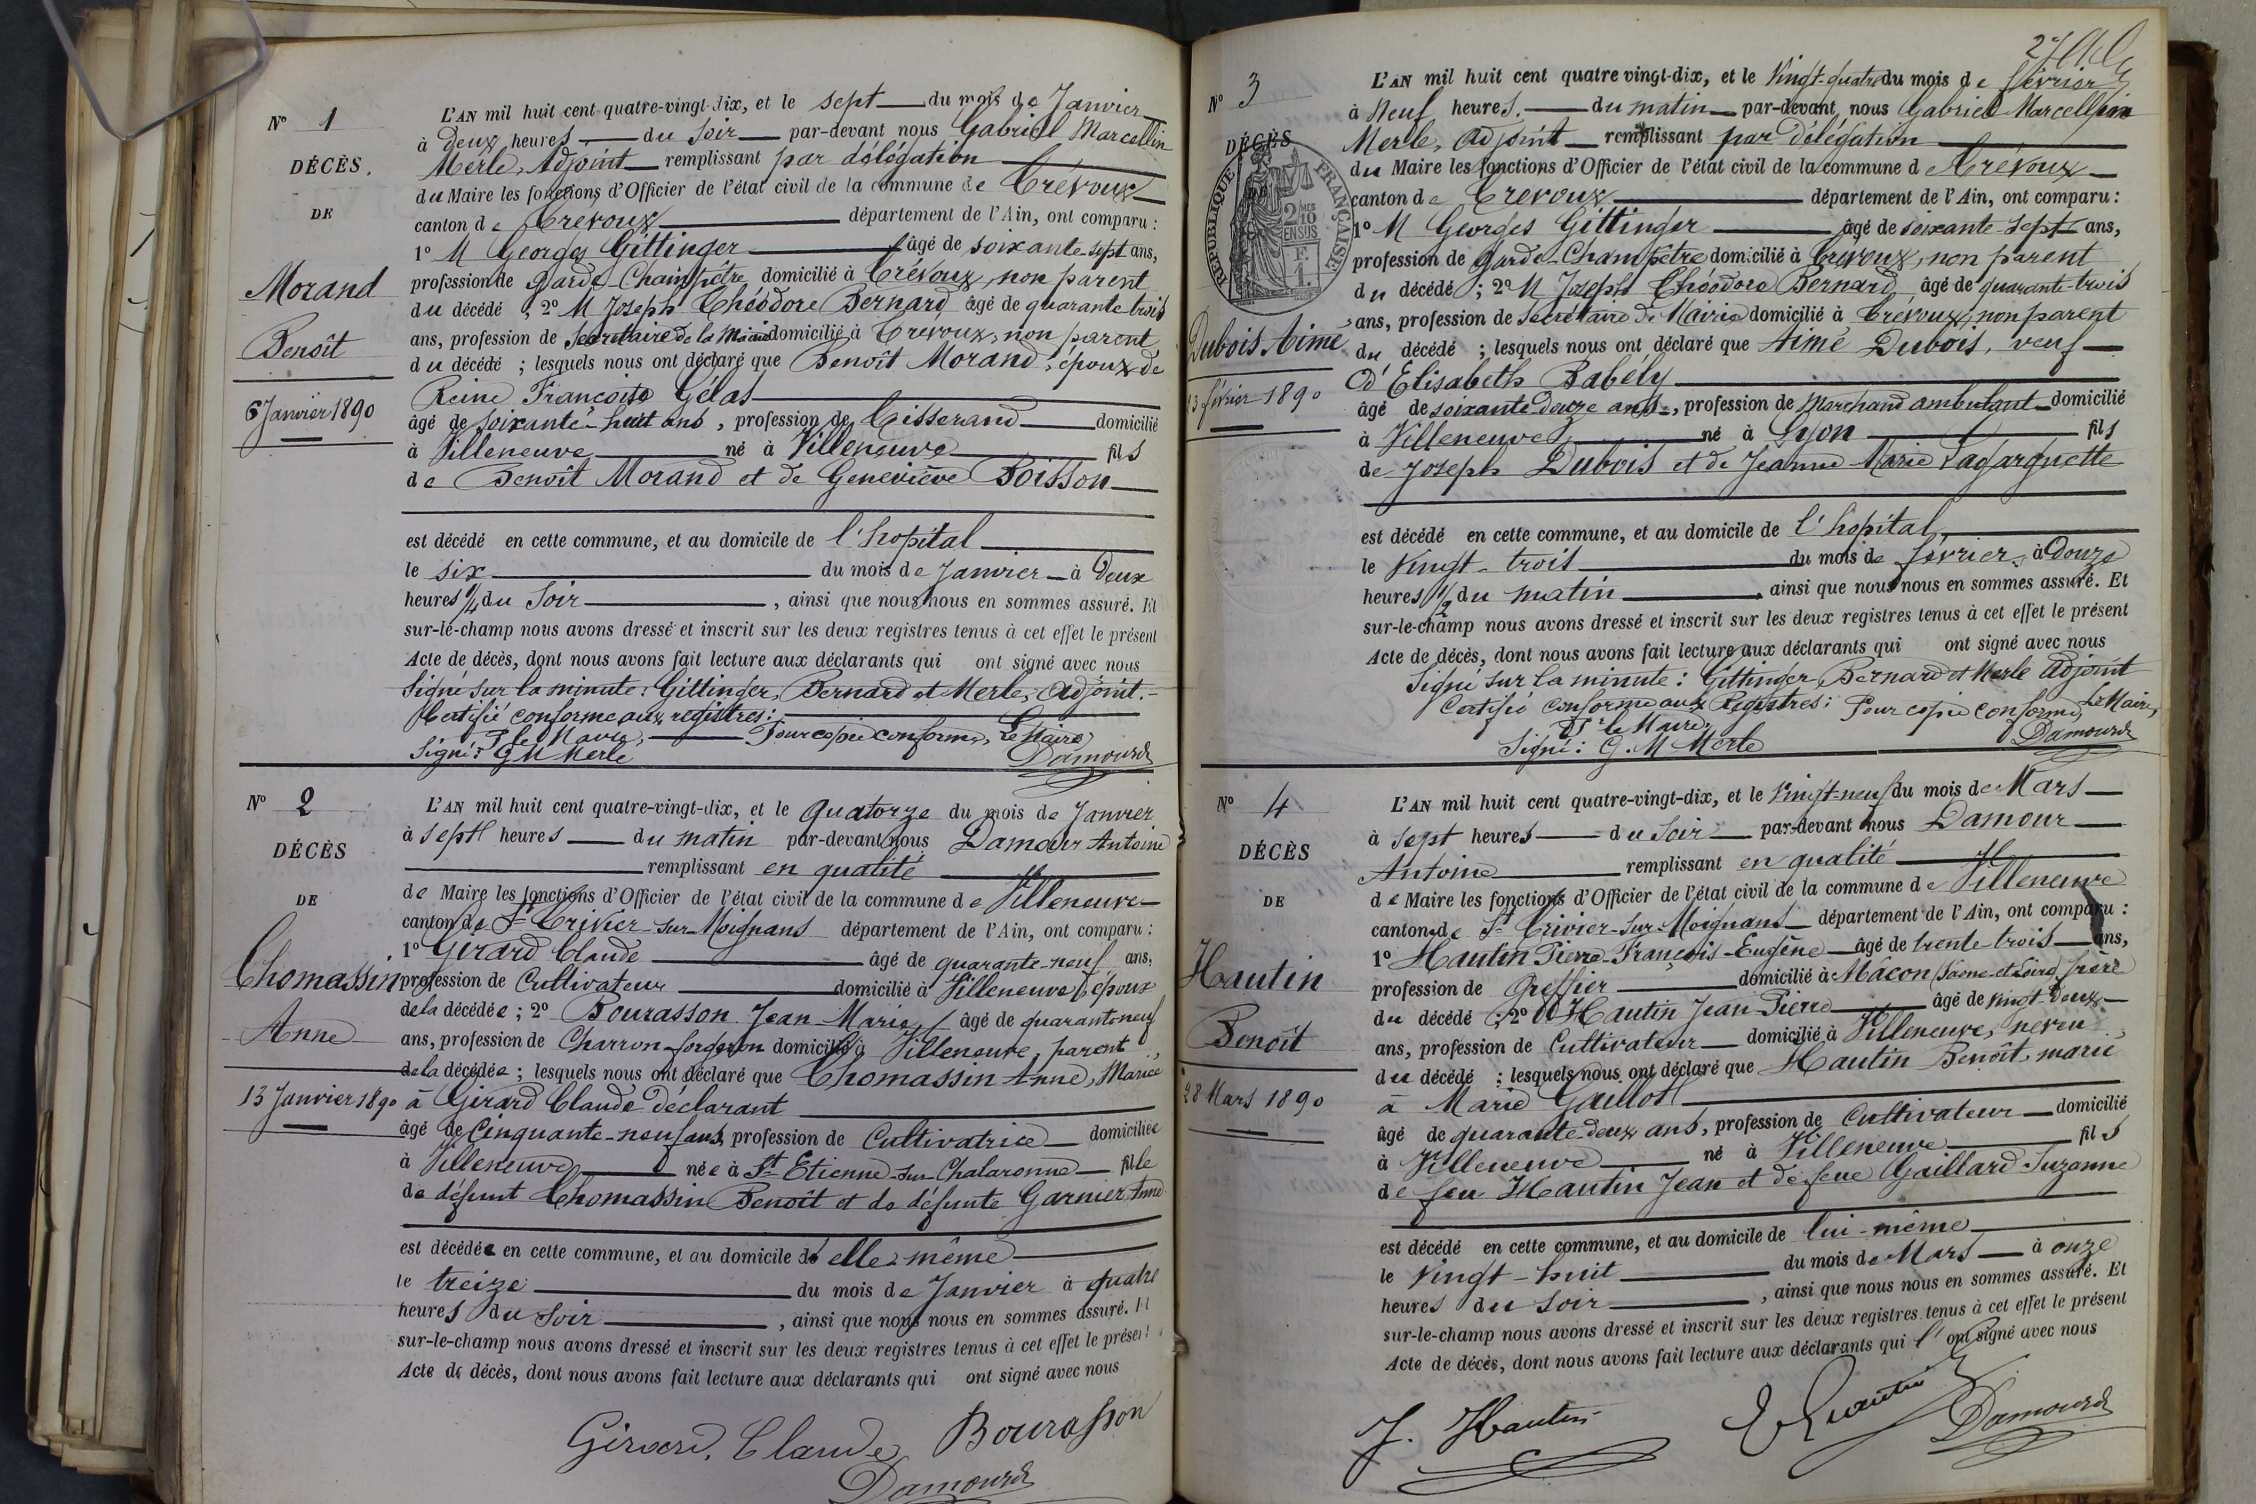 N° 1
DÉCÈS.
DE
Morand
Benoît
6 Janvier 1890
L'AN mil huit cent quatre-vingt-dix, et le sept du mois de Janvier
à deux heures du soir par-devant nous Gabriel Marcellin
Merle, Adjoint remplissant par délégation
du Maire les fonctions d'Officier de l'état civil de la commune de Trévoux
canton de Trevoux département de l'Ain, ont comparu :
1° M Georges Gittinger âgé de soixante-sept ans,
profession de Garde-Champêtre domicilié à Trévoux, non parent
du décédé ; 2° M Joseph Théodore Bernard âgé de quarante-trois
ans, profession de Secrétaire de la Mairie domicilié à Trevoux, non parent
du décédé ; lesquels nous ont déclaré que Benoît Morand, époux de
Reine Françoise Gélas
âgé de soixante-huit ans, profession de Tisserand domicilié
à Villeneuve né à Villeneuve fils
de Benoît Morand et de Geneviève Boisson
est décédé en cette commune, et au domicile de l'hopital
le six du mois de Janvier à deux
heures 1/4 du Soir, ainsi que nous nous en sommes assuré. Et
sur-le-champ nous avons dressé et inscrit sur les deux registres tenus à cet effet le présent
Acte de décès, dont nous avons fait lecture aux déclarants qui ont signé avec nous
Signé sur la minute : Gittinger, Bernard et Merle, Adjoint.
Certifié conforme aux registres :
Pr le Maire, Pour copie conforme, Le Maire,
Signé : G M Merle Damour
N° 2
DÉCÈS
DE
Thomassin
Anne
13 Janvier 1890
L'AN mil huit cent quatre-vingt-dix, et le quatorze du mois de Janvier
à sept heures du matin par-devant nous Damour Antoine
remplissant en qualité
de Maire les fonctions d'Officier de l'état civil de la commune de Villeneuve
canton de St Trivier-sur-Moignans département de l'Ain, ont comparu :
1° Girard Claude âgé de quarante-neuf ans,
profession de Cultivateur domicilié à Villeneuve, époux
de la décédée ; 2° Bourasson Jean-Marie âgé de quarante-neuf
ans, profession de Charron-forgeron domicilié à Villeneuve, parent
de la décédée ; lesquels nous ont déclaré que Thomassin Anne, Mariée
à Girard Claude déclarant
âgé de Cinquante-neuf ans, profession de Cultivatrice domiciliée
à Villeneuve née à St Etienne-sur-Chalaronne fille
de défunt Thomassin Benoît et de défunte Garnier Anne
est décédée en cette commune, et au domicile de elle-même
le treize du mois de Janvier à quatre
heures du Soir, ainsi que nous nous en sommes assuré. Et
sur-le-champ nous avons dressé et inscrit sur les deux registres tenus à cet effet le présent
Acte de décès, dont nous avons fait lecture aux déclarants qui ont signé avec nous
Girard, Claude Bourasson
Damour
N° 3
DÉCÈS
RÉPUBLIQUE FRANÇAISE
2/10 EN SUS
Dubois Aimé
23 février 1890
L'AN mil huit cent quatre vingt-dix, et le Vingt-quatre du mois de février
à Neuf heures du matin par-devant nous Gabriel Marcellin
Merle, Adjoint remplissant par délégation
du Maire les fonctions d'Officier de l'état civil de la commune de Trévoux
canton de Trevoux département de l'Ain, ont comparu :
1° M Georges Gittinger âgé de soixante-sept ans,
profession de Garde-Champêtre domicilié à Trevoux, non parent
du décédé ; 2° M Joseph Théodore Bernard âgé de quarante-trois
ans, profession de Secrétaire de Mairie domicilié à Trévoux, non parent
du décédé ; lesquels nous ont déclaré que Aimé Dubois, veuf
d'Elisabeth Babély
âgé de soixante-douze ans, profession de Marchand ambulant domicilié
à Villeneuve né à Lyon fils
de Joseph Dubois et de Jeanne Marie Lagarguette
est décédé en cette commune, et au domicile de l'hopital
le Vingt-trois du mois de février à Douze
heures 1/2 du matin, ainsi que nous nous en sommes assuré. Et
sur-le-champ nous avons dressé et inscrit sur les deux registres tenus à cet effet le présent
Acte de décès, dont nous avons fait lecture aux déclarants qui ont signé avec nous
Signé sur la minute : Gittinger, Bernard et Merle Adjoint
Certifié conforme aux Registres : Pour copie conforme, Le Maire,
Pr le Maire, Damour
Signé : G. M Merle
N° 4
DÉCÈS
DE
Hautin
Benoît
28 Mars 1890
L'AN mil huit cent quatre-vingt-dix, et le Vingt-neuf du mois de Mars
à sept heures du soir par-devant nous Damour
Antoine remplissant en qualité
de Maire les fonctions d'Officier de l'état civil de la commune de Villeneuve
canton de St Trivier-sur-Moignans département de l'Ain, ont comparu :
1° Hautin Pierre-François-Eugène âgé de trente trois ans,
profession de Greffier domicilié à Mâcon (Saône-et-Loire) frère
du décédé ; 2° Hautin Jean-Pierre âgé de vingt-deux
ans, profession de Cultivateur domicilié à Villeneuve, neveu
du décédé ; lesquels nous ont déclaré que Hautin Benoît, marié
à Marie Gaillot
âgé de quarante-deux ans, profession de Cultivateur domicilié
à Villeneuve né à Villeneuve fils
de feu Hautin Jean et de feue Gaillard Suzanne
est décédé en cette commune, et au domicile de lui-même
le Vingt-huit du mois de Mars à onze
heures du Soir, ainsi que nous nous en sommes assuré. Et
sur-le-champ nous avons dressé et inscrit sur les deux registres tenus à cet effet le présent
Acte de décès, dont nous avons fait lecture aux déclarants qui l'ont signé avec nous
J. Hautin E Hautin
Damour